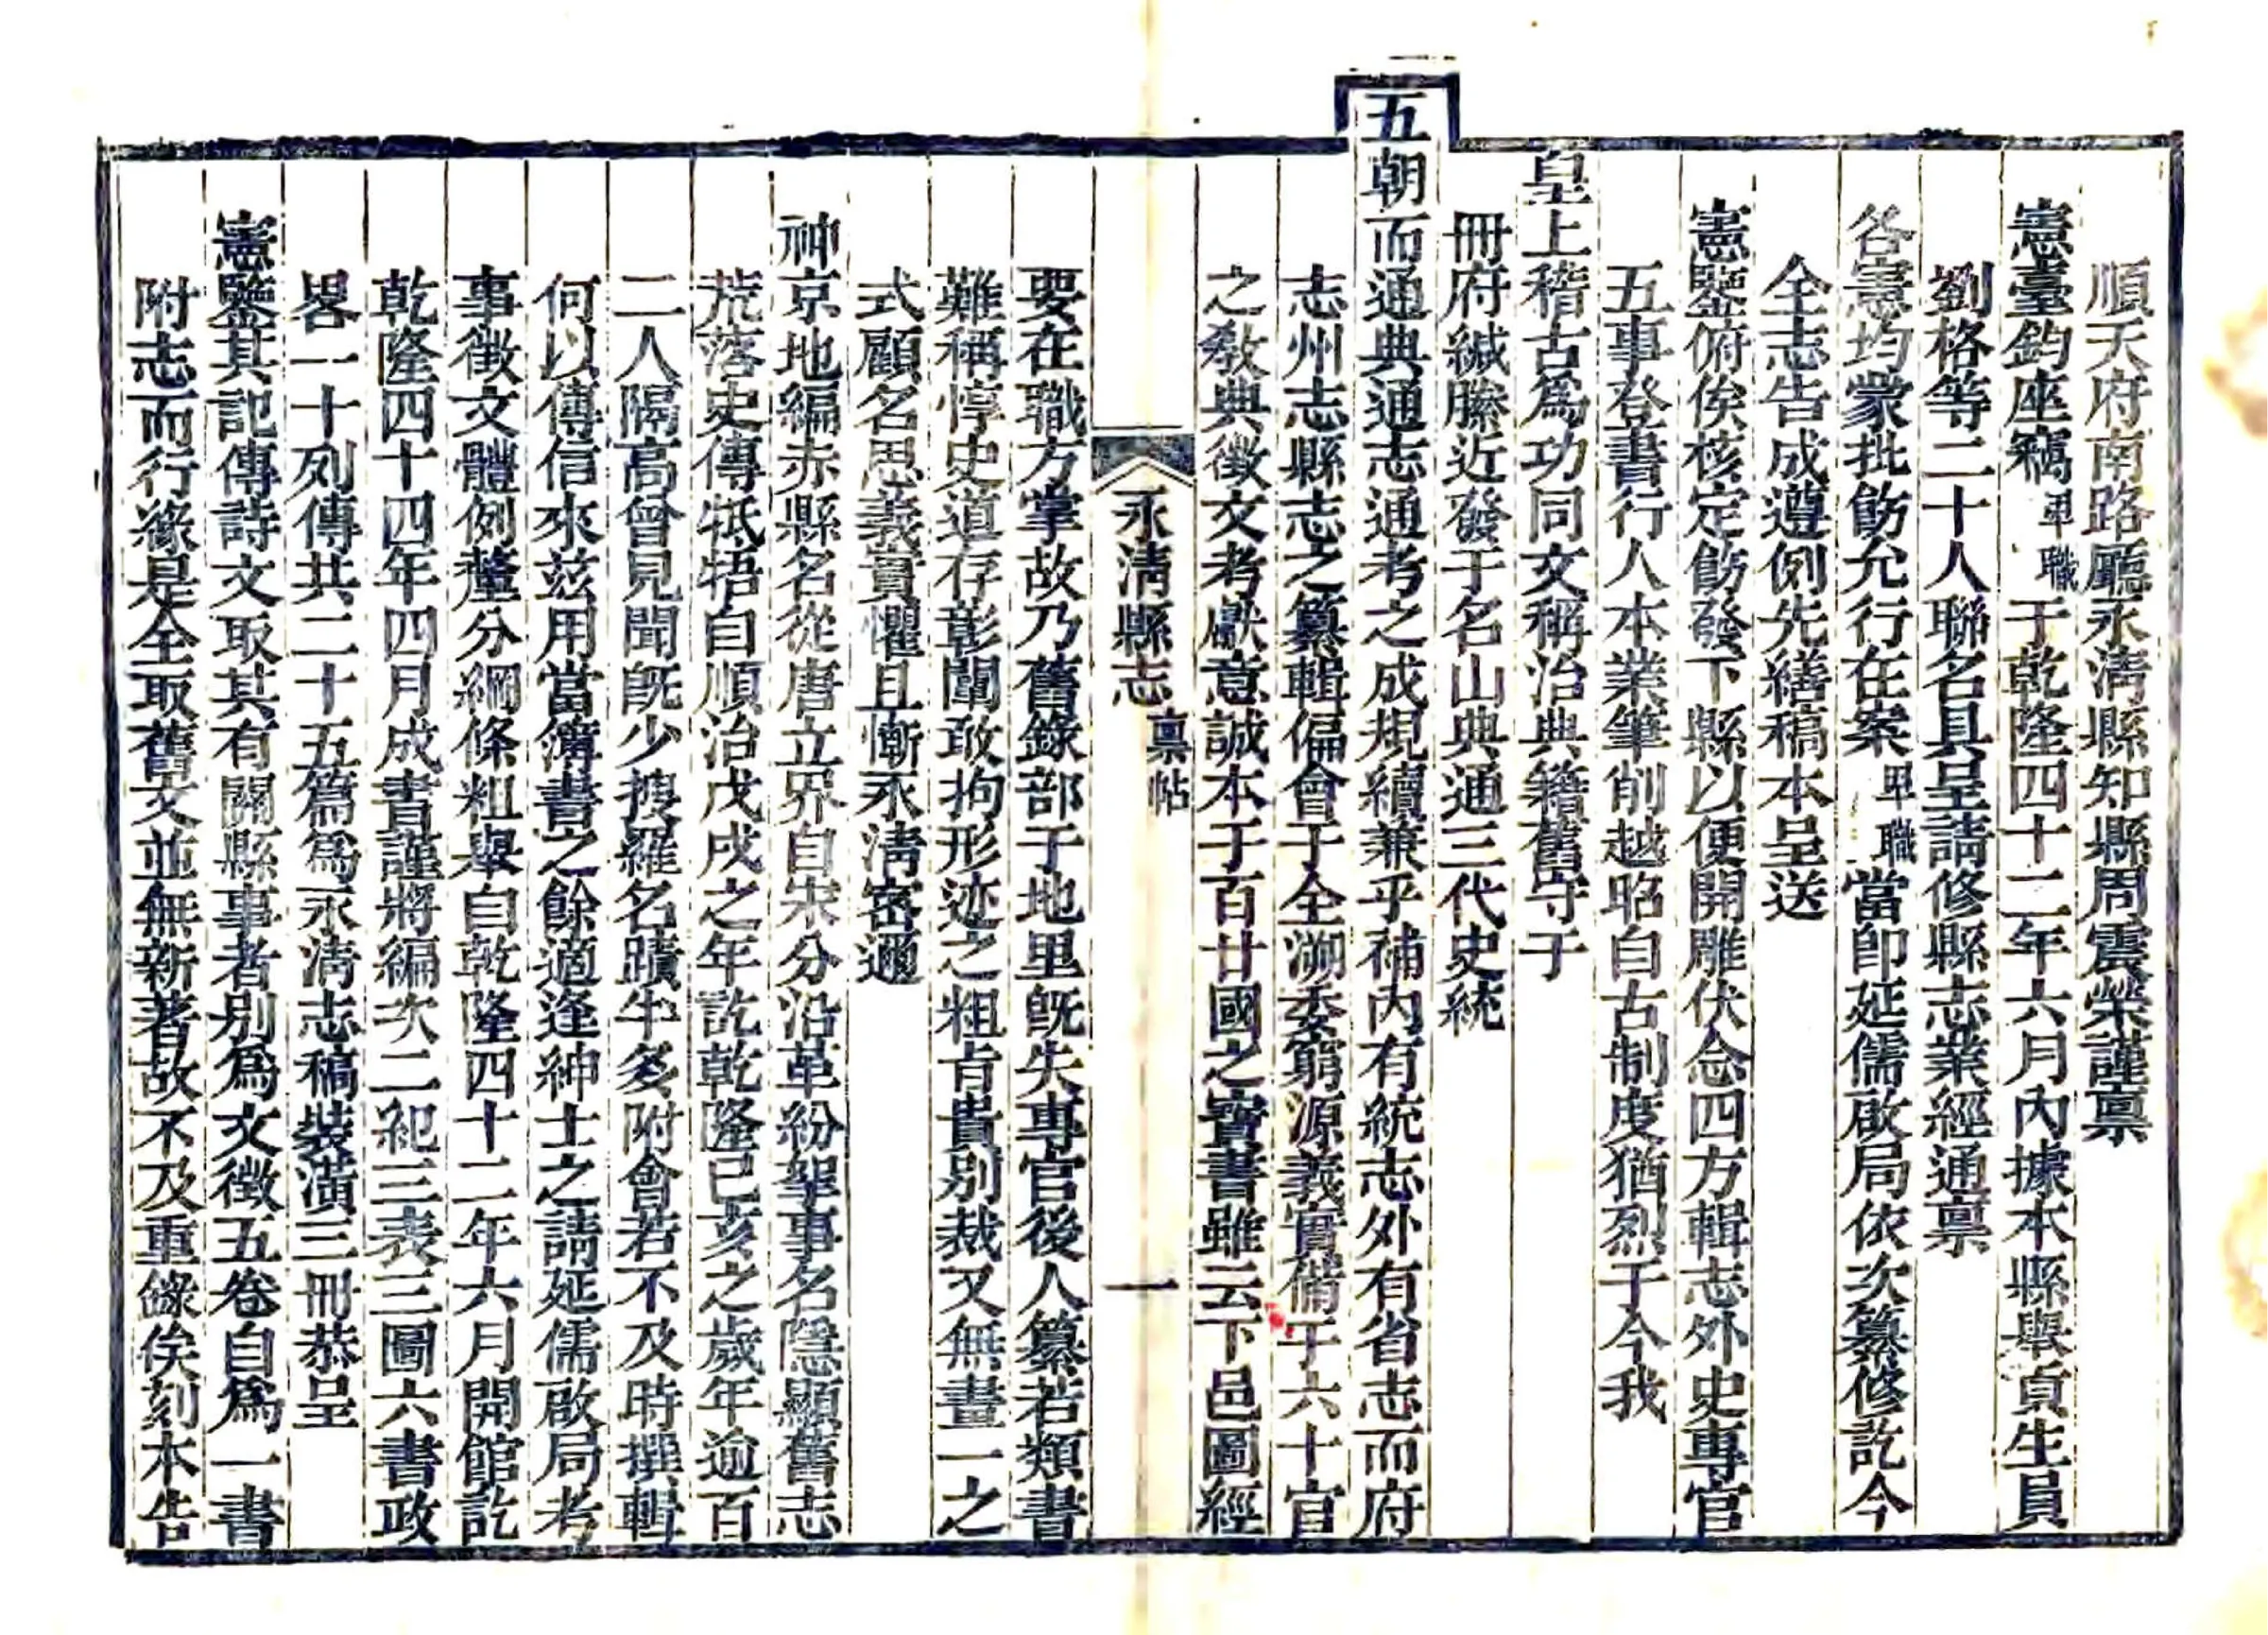 順天府南路廳永淸縣知縣周震榮謹禀
憲臺鈞座竊卑職于乾隆四十二年六月內據本縣舉貢生員
劉格等二十人聯名具呈請修縣志業經通禀
各憲均蒙批飭允行在案卑職當卽延儒啟局依次纂修訖今
全志告成遵例先繕稿本呈送
憲鑒俯俟核定飭發下縣以便開雕伏念四方輯志外史專官
五事登書行人本業筆削越昭自古制度猶烈于今我
皇上稽古爲功同文稱治典籍舊守于
冊府緘縢近發于名山典通三代史統
五朝而通典通志通考之成規續兼乎補內有統志外有省志而府
志州志縣志之纂輯偏會于全溯委窮源義實備于六十官
之敎典徵文考獻意誠本于百廿國之寶書雖云下邑圖經
永淸縣志 禀帖 一
要在職方掌故乃舊錄部于地里旣失專官後人纂若類書
難稱惇史道存彰闡敢拘形迹之粗占貴別裁又無畫一之
式顧名思義實懼且慚永淸密邇
神京地編赤縣名從唐立界自宋分沿革紛挐事名隱顯舊志
荒落史傳牴牾自順治戊戌之年訖乾隆已亥之歲年逾百
二人隔高曾見聞旣少搜羅名蹟半多附會若不及時撰輯
何以傳信來茲用當簿書之餘適逢紳士之請延儒啟局考
事徵文體例釐分綱條粗舉自乾隆四十二年六月開館訖
乾隆四十四年四月成書謹將編次二紀三表三圖六書政
畧一十列傳共二十五篇爲永淸志稿裝潢三冊恭呈
憲鑒其記傳詩文取其有關縣事者別爲文徵五卷自爲一書
附志而行緣是全取舊文並無新著故不及重錄俟刻本告